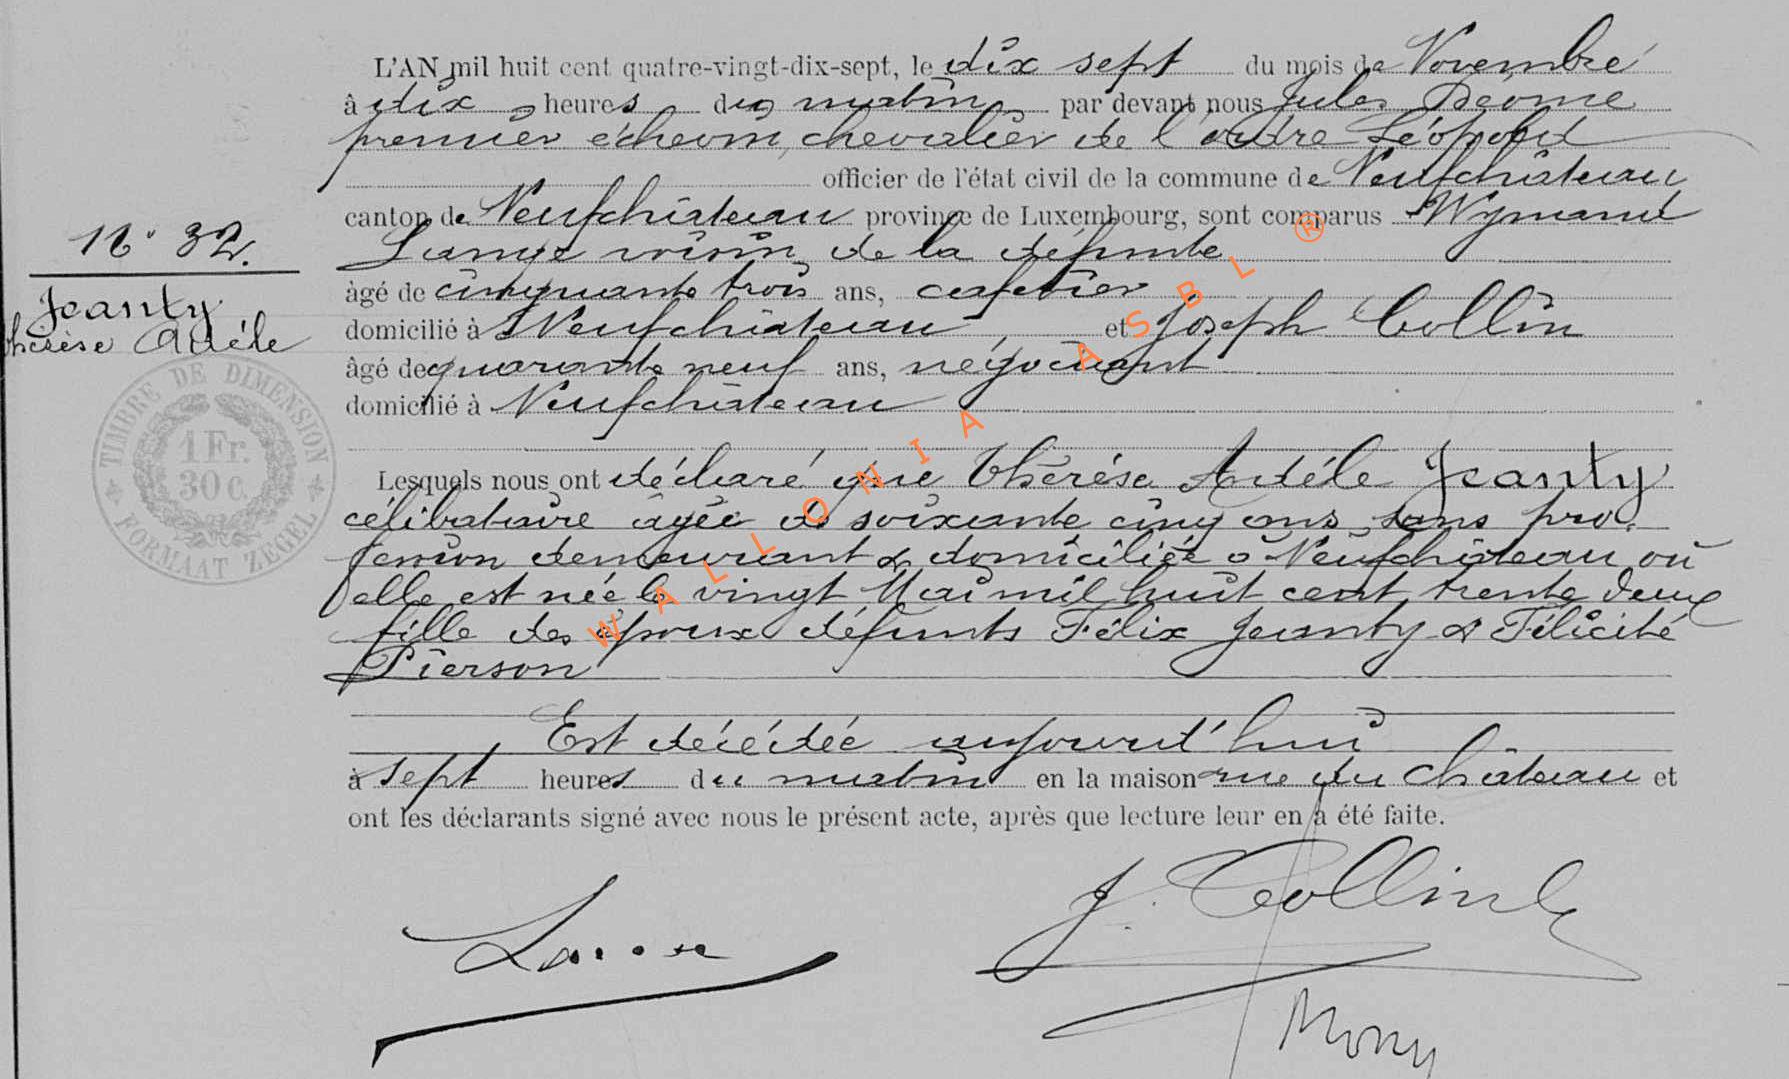 L'AN mil huit cent quatre-vingt-dix-sept, le dix sept du mois de Novembre
à dix heures du matin par devant nous Jules
premier échevin, chevalier de l'ordre Léopold
officier de l'état civil de la commune de Neufchâteau
canton de Neufchâteau province de Luxembourg, sont comparus Wynand
voisin de la défunte
âgé de cinquante trois ans, cafetier
domicilié à Neufchâteau et Joseph Collin
âgé de quarante neuf ans, négociant
domicilié à Neufchâteau
N° 32.
Jeanty
thérèse Adèle
TIMBRE DE DIMENSION
1 Fr.
30 c.
FORMAAT ZEGEL
Lesquels nous ont déclaré que thérèse Adèle Jeanty
célibataire âgée de soixante cinq ans, sans pro-
fession demeurant & domiciliée à Neufchâteau où
elle est née le vingt Mai mil huit cent trente deux
fille des époux défunts Félix Jeanty & Félicité
Pierson
Est décédée aujourd'hui
à sept heures du matin en la maison rue du Château et
ont les déclarants signé avec nous le présent acte, après que lecture leur en a été faite.
J. Collin
WALLONIA ASBL ®